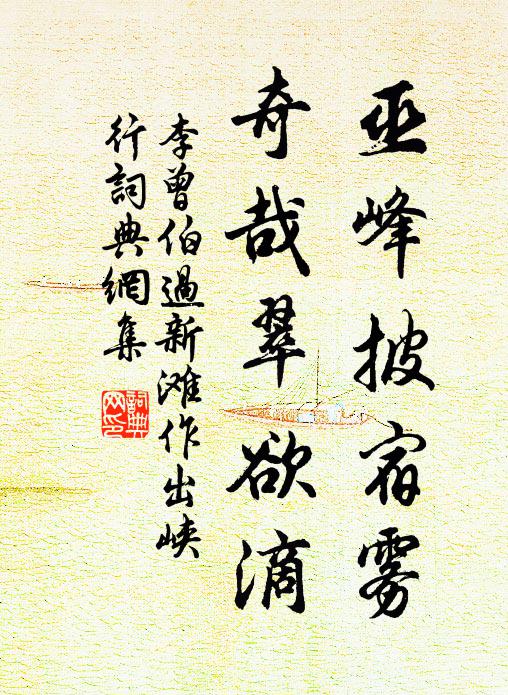 巫峰披宿雾
奇哉翠欲滴
李曾伯過新滩作出峡
行詞典網集
詞典网印